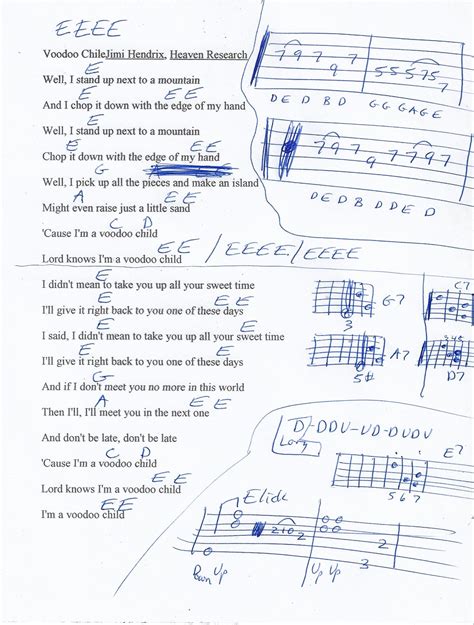 EEEE
Voodoo ChileJimi Hendrix, Heaven Research
E
Well, I stand up next to a mountain
E E
And I chop it down with the edge of my hand
E
Well, I stand up next to a mountain
E E
Chop it down with the edge of my hand
G A
Well, I pick up all the pieces and make an island
A E E
Might even raise just a little sand
C D
'Cause I'm a voodoo child
E E / EEEE / EEEE
Lord knows I'm a voodoo child
E
I didn't mean to take you up all your sweet time
E E
I'll give it right back to you one of these days
E
I said, I didn't mean to take you up all your sweet time
E E
I'll give it right back to you one of these days
G
And if I don't meet you no more in this world
A
Then I'll, I'll meet you in the next one
And don't be late, don't be late
C D
'Cause I'm a voodoo child
E E
Lord knows I'm a voodoo child
E E
I'm a voodoo child
7 9 7 9 7 5 5 5 7 5 7
D E D B D G G G A G E
7 9 7 9 7 7 9 7
D E D B D D E D
G7
3
C7
A7
5#
3 4 5
D7
D-DDU-UD-DUDU
Long
E7
5 6 7
Elide
0 0 0
0 2 1 0 2 0 0 2
0 3
Down Up Up Up